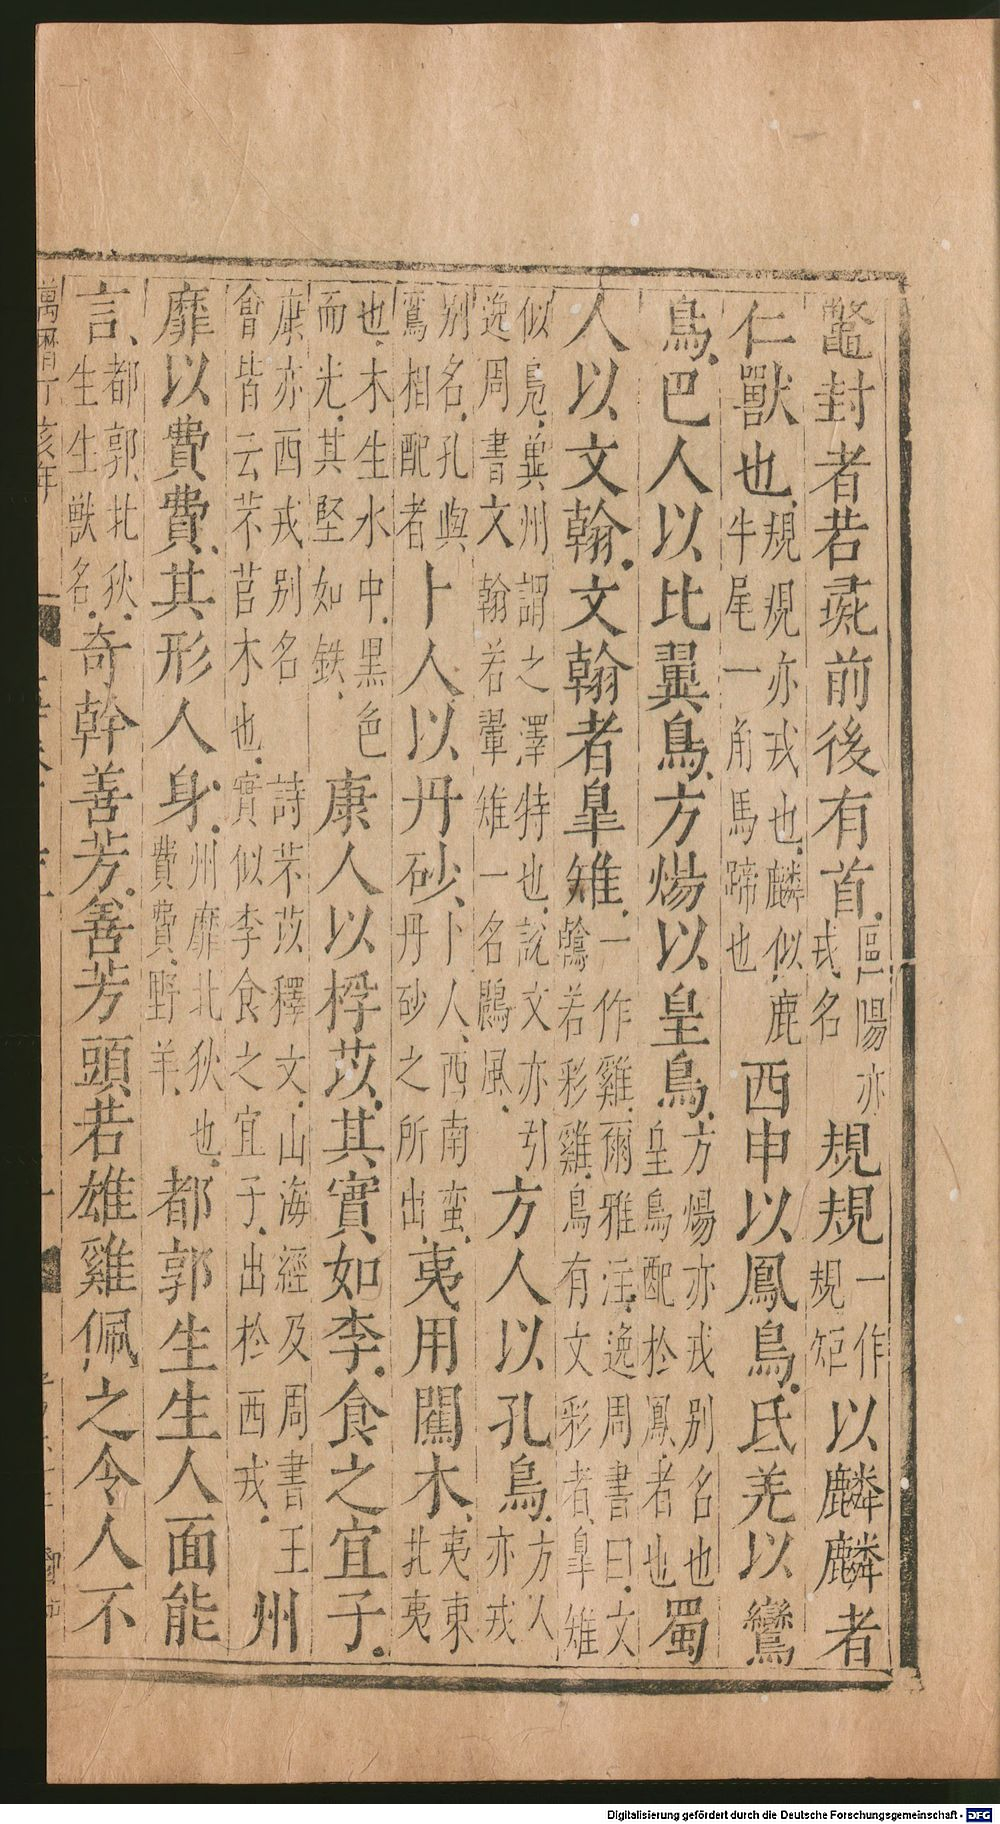 鼈封者若彘前後有首區陽亦戎名規規一作規矩以麟麟者
仁獸也規規亦戎也麟似鹿牛尾一角馬蹄也西申以鳳鳥氐羌以鸞
鳥巴人以比翼鳥方煬以皇鳥方煬亦戎別名也皇鳥配於鳳者也蜀
人以文翰文翰者皐雉一作雞爾雅注逸周書曰文鶾若彩雞鳥有文彩者皐雉
似鳧兾州謂之澤特也說文亦引逸周書文翰若翬雉一名鷐風方人以孔鳥方人亦戎
別名孔與鸞相配者卜人以丹砂卜人西南蛮丹砂之所出夷用闟木夷東北夷
也木生水中黒色而光其堅如鉄康人以桴苡其實如李食之宜子
康亦西戎别名詩芣苡釋文山海經及周書王會皆云芣苢木也實似李食之宜子出於西戎州
靡以費費其形人身州靡北狄也費費野羊都郭生生人面能
言都郭北狄生生獸名奇幹善芳善芳頭若雄雞佩之令人不
萬曆丁亥年
Digitalisierung gefördert durch die Deutsche Forschungsgemeinschaft - DFG